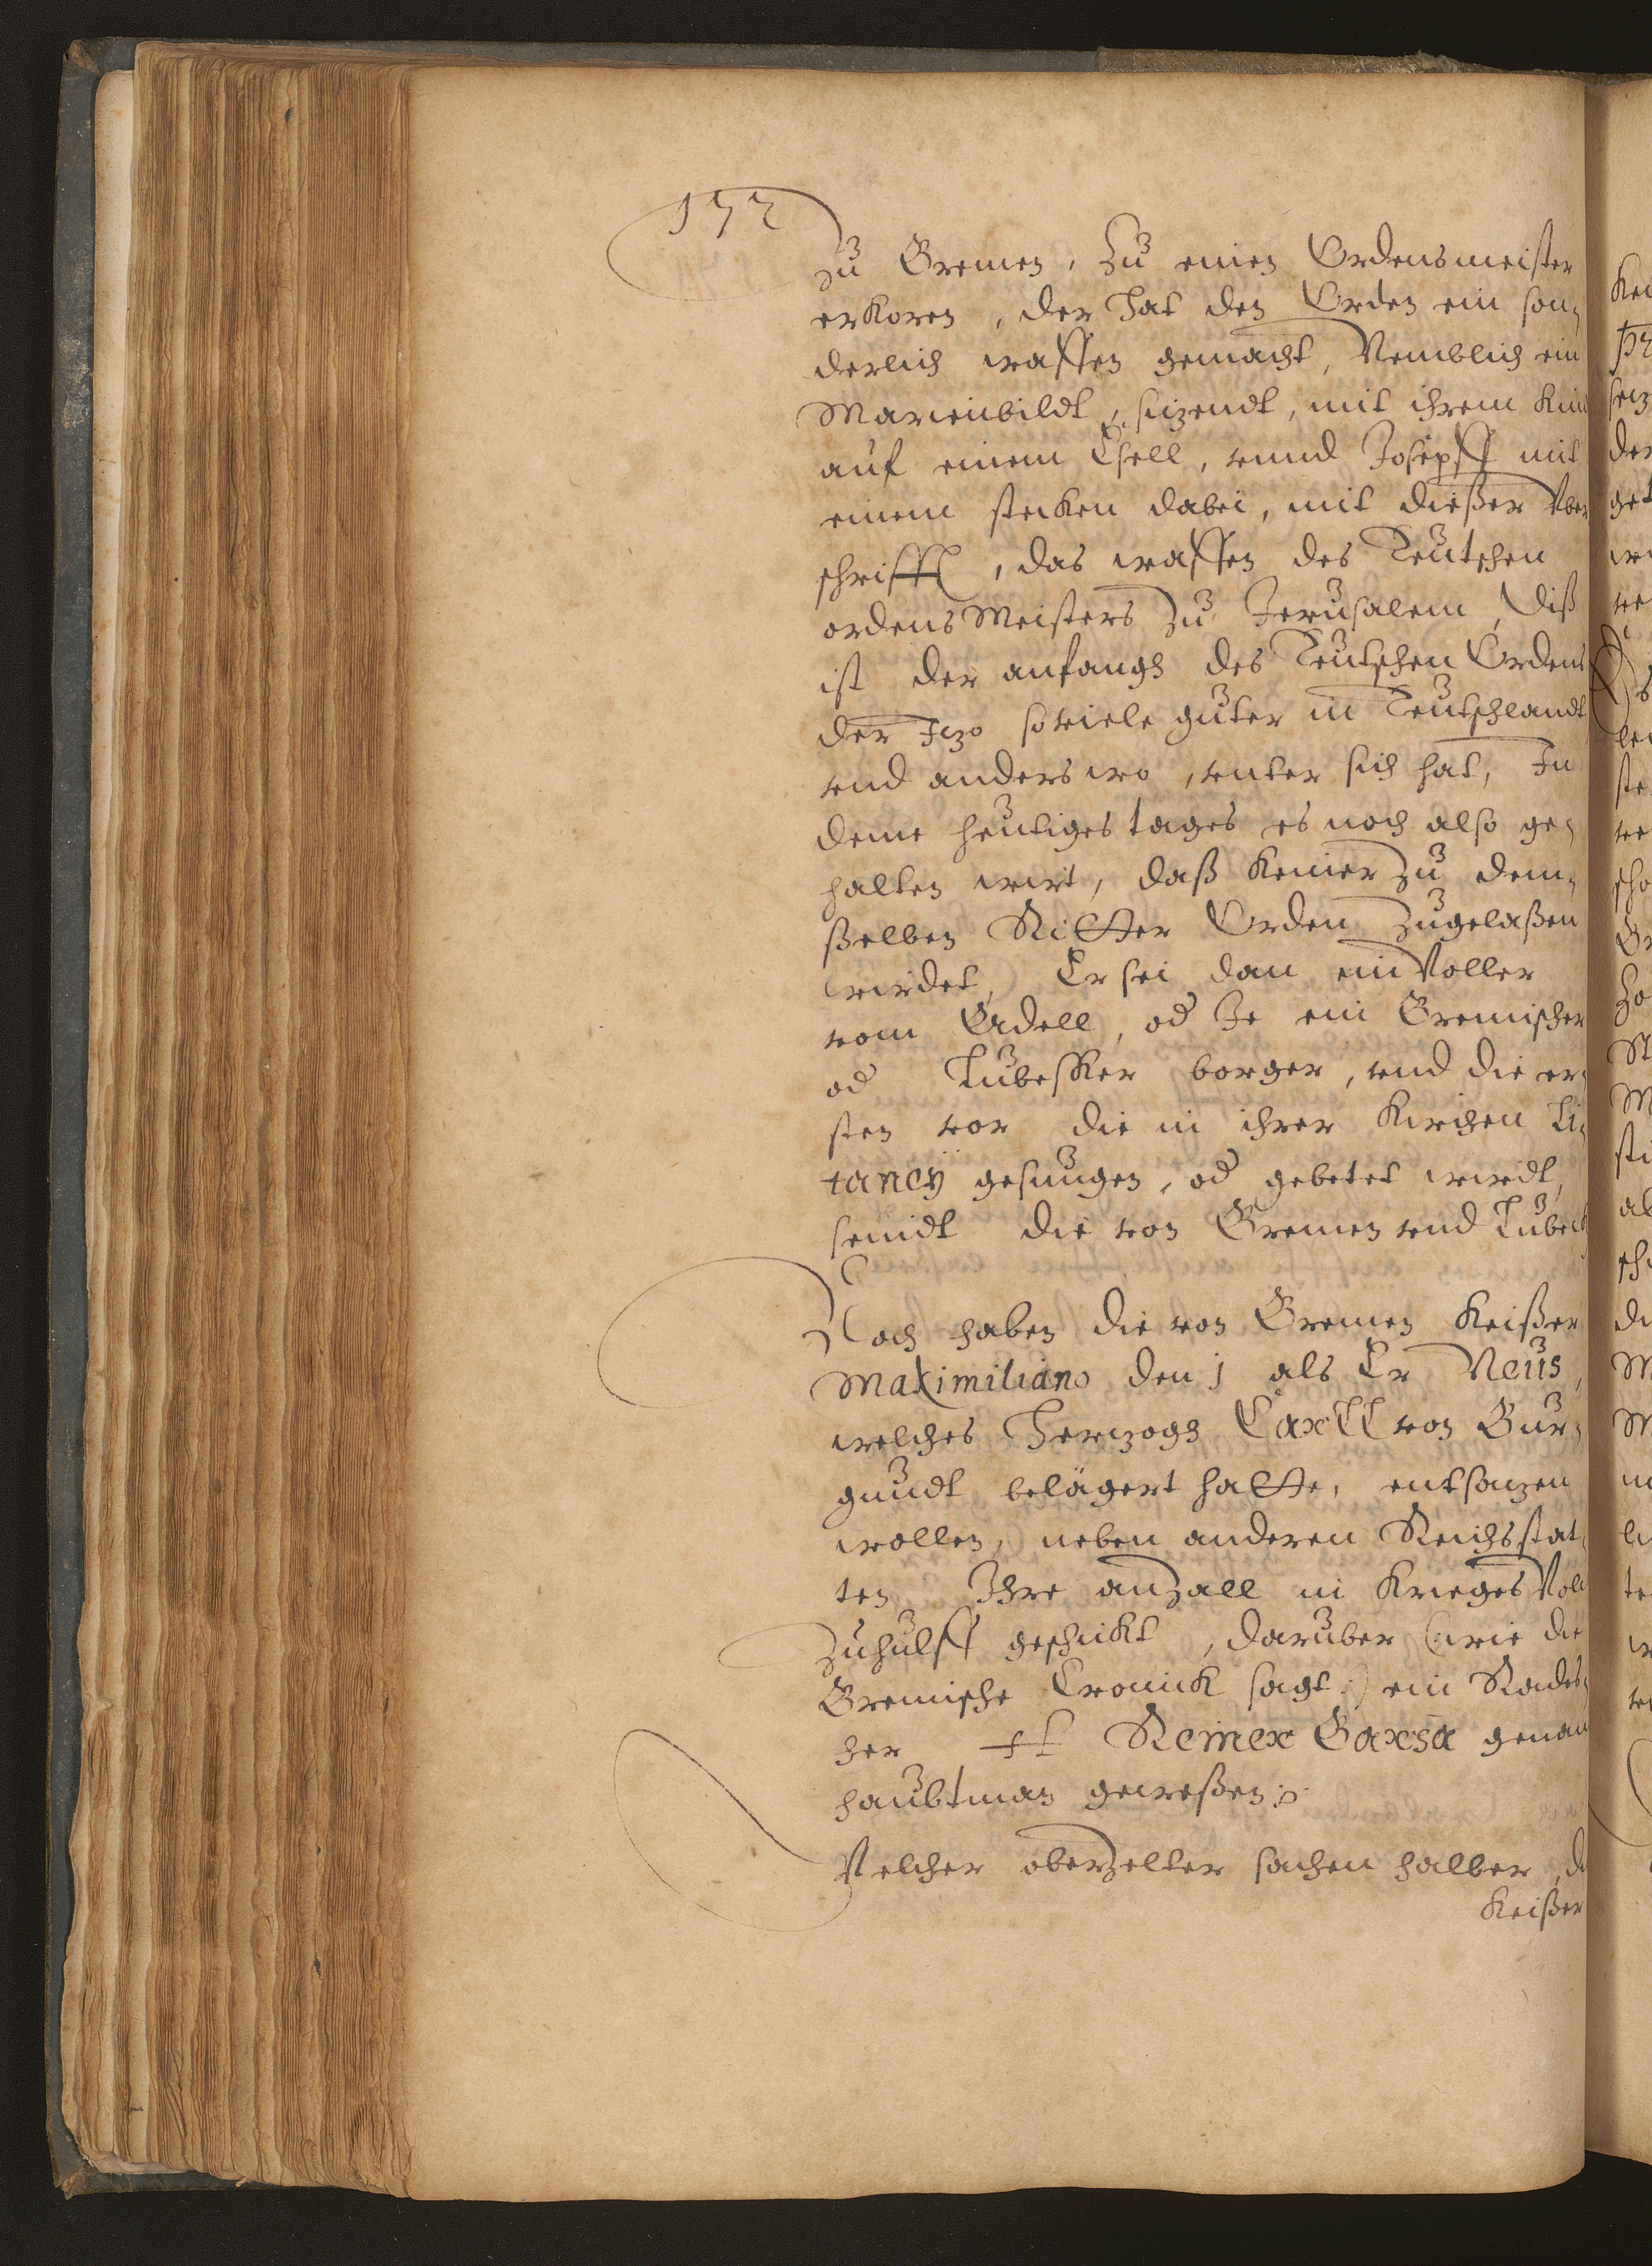 172
zu Bremen, zu einen Ordensmeister
erkoren, der hat den Orden ein son,
derlich waffen gemacht, Nemblich ein
Marienbildt, sitzendt, mit ihrem Kin
auf einem Esell, vnnd Josepff mit
einem stecken dabei, mit dießer Vber
schrifft, das waffen des Teutschen
ordens Meisters zu Jerusalem, diß
ist der anfangh des Teutschen Ordens
der Jtzo soviele guter in Teutschlandt
vnd anderswo, vnter sich hat, Jn
deme heutiges tages es noch also ge,
halten wirt, daß keiner zu dem,
ßelben Ritter Orden zugelaßen
wirdet, Er sei dan ein Voller
vom Adell, od Je ein Bremischer
od Lubesker borger, vnd die er,
sten vor die in ihrer Kirchen Li,
taney gesungen, od gebetet wirdt,
seindt die von Bremen vnd Lubeck
Noch haben die von Bremen Keißer
Maximiliano den 1 als Er Neus,
welches Hertzogh Carll von Bur,
gundt belägert hatte, entsatzen
wollen, neben anderen Reichsstat,
ten Ihre anzall in Krieges Volck
zuhulff geschickt, daruber (wie die
Bremische Cronick sagt:) ein Rades,
her H Reiner Barsa genan
haubtman geweßen
Welcher oberzelter sachen halber, d
Keißer